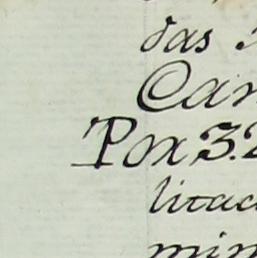 das
Can
Por 3.2
litac
min